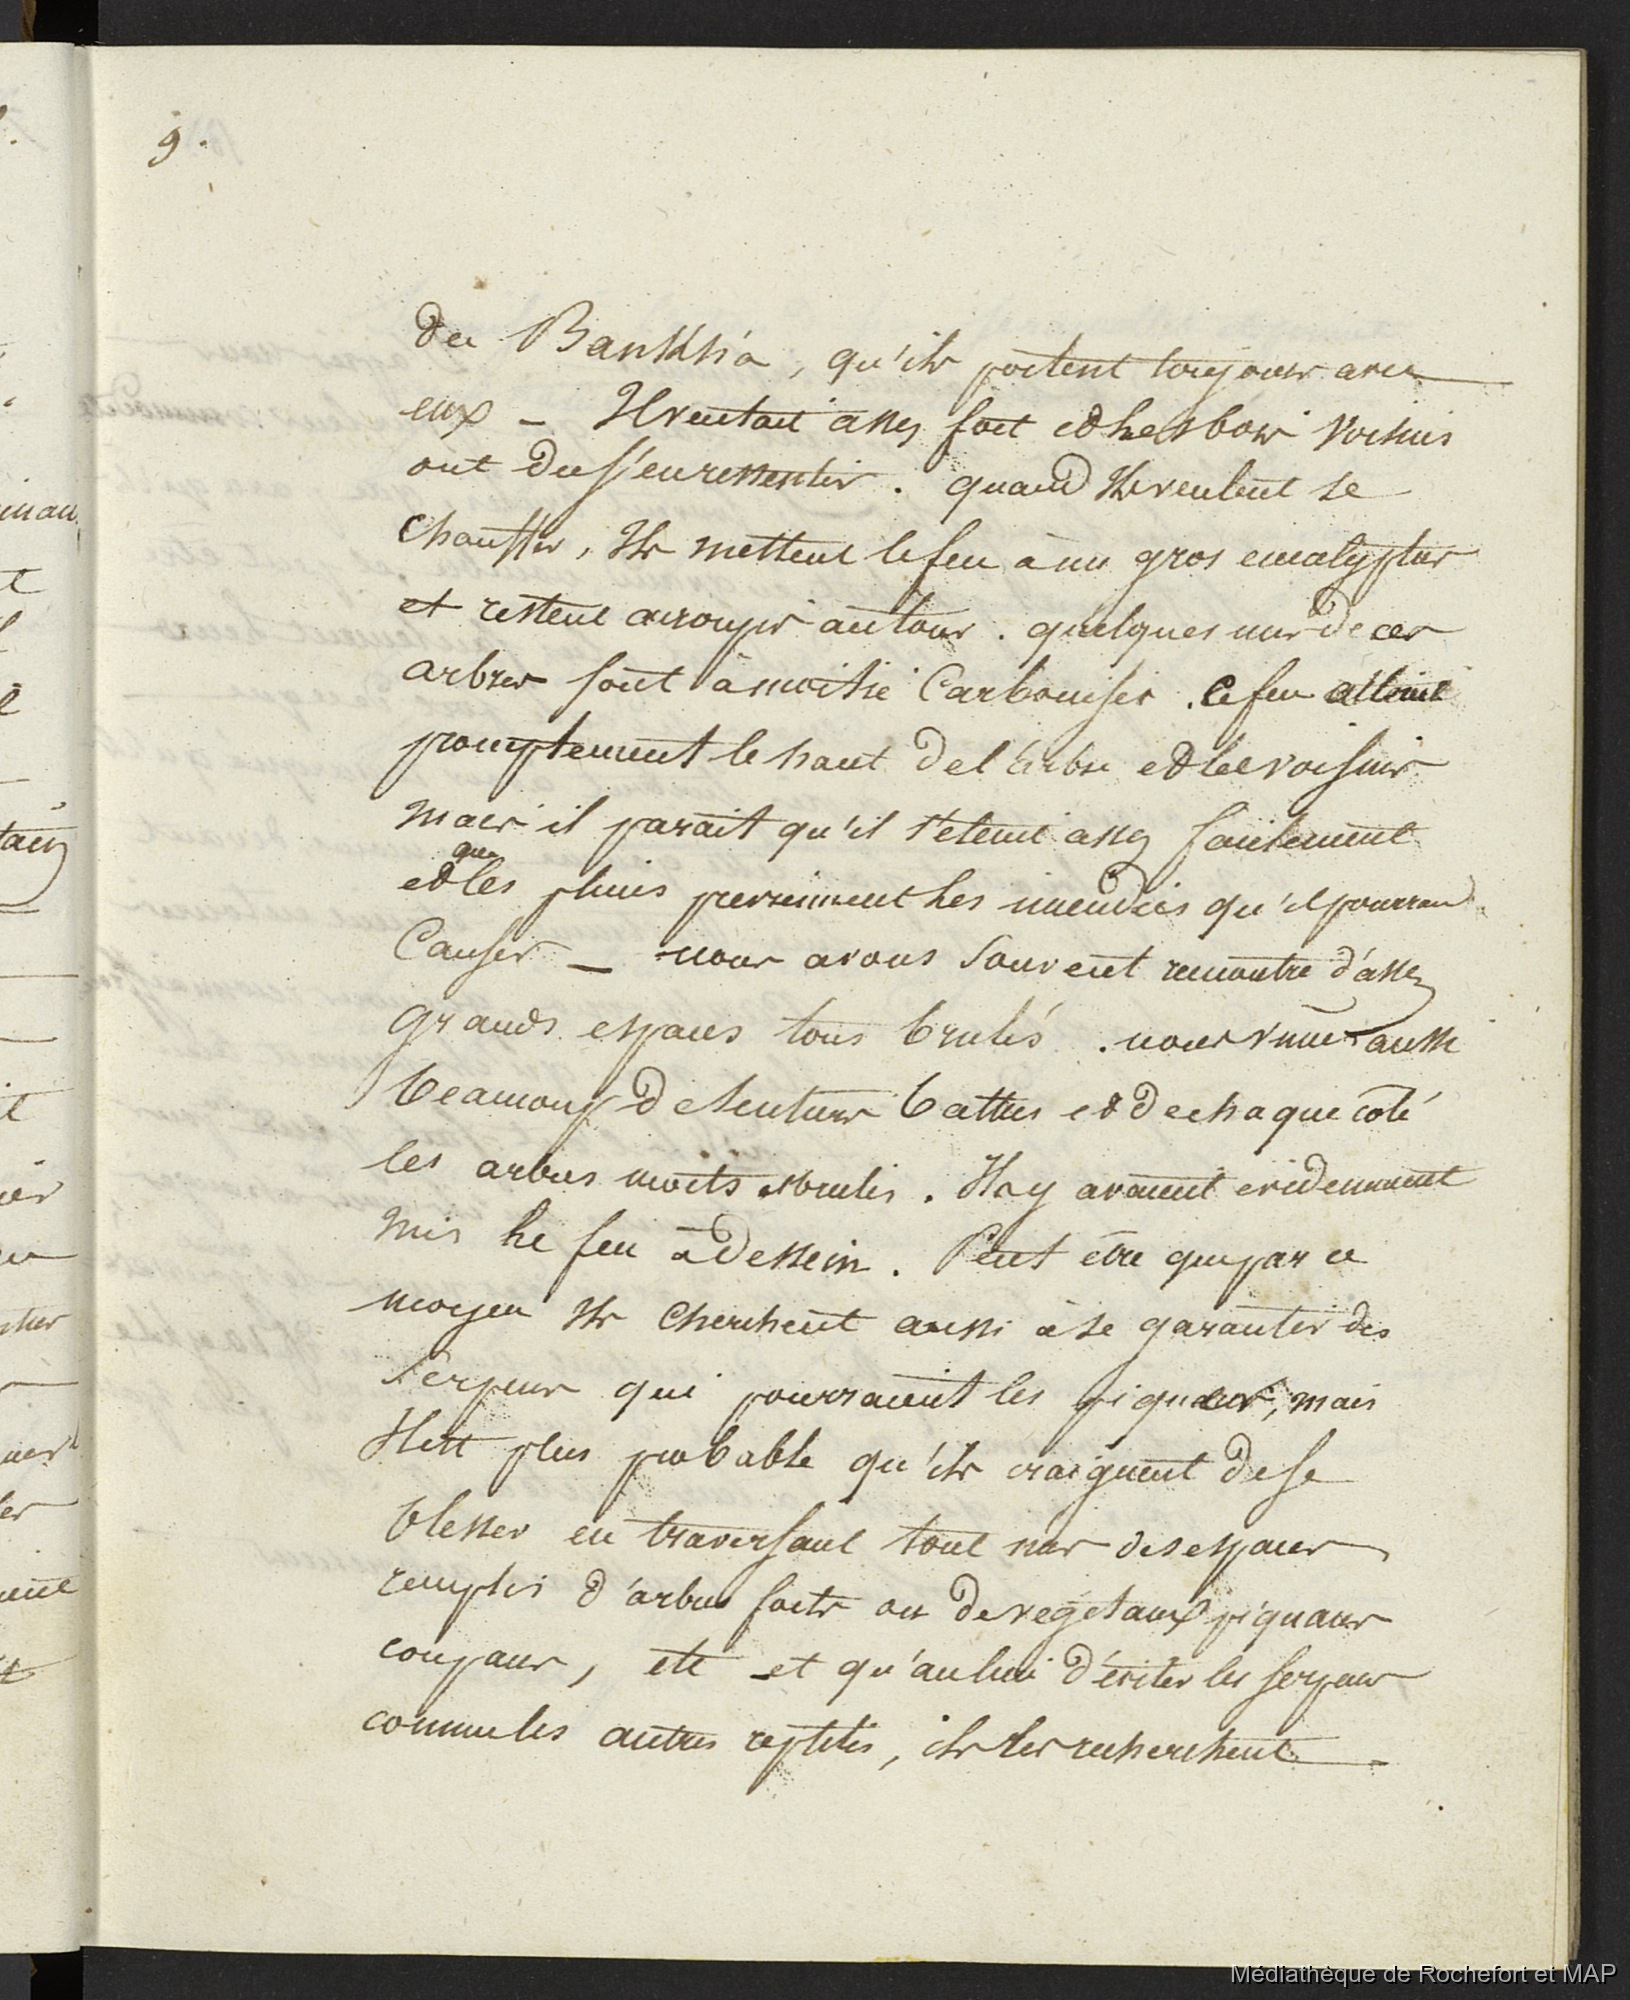 9.
du Banksia, qu'ils portent toujours avec
eux – Il ventait assez fort et les bois voisins
ont du s'en ressentir. quand Ils veulent se
chauffer, Ils mettent le feu à un gros eucalyptus
et restent acroupis autour. quelques uns de ces
arbres sont à moitié Carbonisés. Le feu atteint
promptement le haut de l'arbre et les voisins
mais il parait qu'il s'éteint assez facilement
que
et les pluies previennent les incendies qu'il pourrait
Causer – nous avons souvent rencontré d'assez
grands espaces tous brulés. nous vimes aussi
beaucoup de sentiers battus et de chaque coté
les arbres morts brulés. Ils y avaient evidemment
mis le feu à dessein. Peut être que par ce
moyen Ils cherchent aussi à se garantir des
serpens qui pourraient les piquer, mais
Il est plus probable qu'ils craignent de se
blesser en traversant tout nus des espaces
remplis d'arbres forts ou de végétaux piquans
coupans, etc et qu'au lieu d'éviter les serpens
comme les autres reptiles, ils les recherchent
Médiathèque de Rochefort et MAP